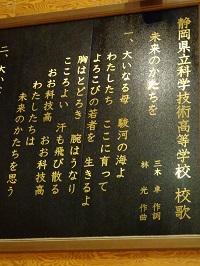 静岡県立科学技術高等学校 校歌
未来のかたちを
三木 卓 作詞
林 光 作曲
一、大いなる母 駿河の海よ
わたしたち ここに育って
よろこびの若者を 生きるよ
胸はとどろき 腕はうなり
こころよい 汗も飛び散る
おお科技高 おお科技高
わたしたちは
未来のかたちを思う
二、大